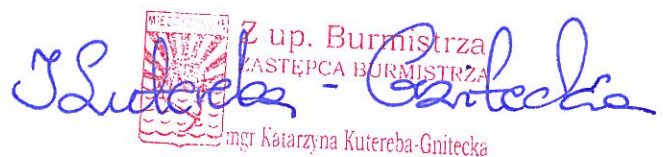 MIĘDZYZDROJE
Z up. Burmistrza
ZASTĘPCA BURMISTRZA
KKutereba - Gnitecka
mgr Katarzyna Kutereba-Gnitecka